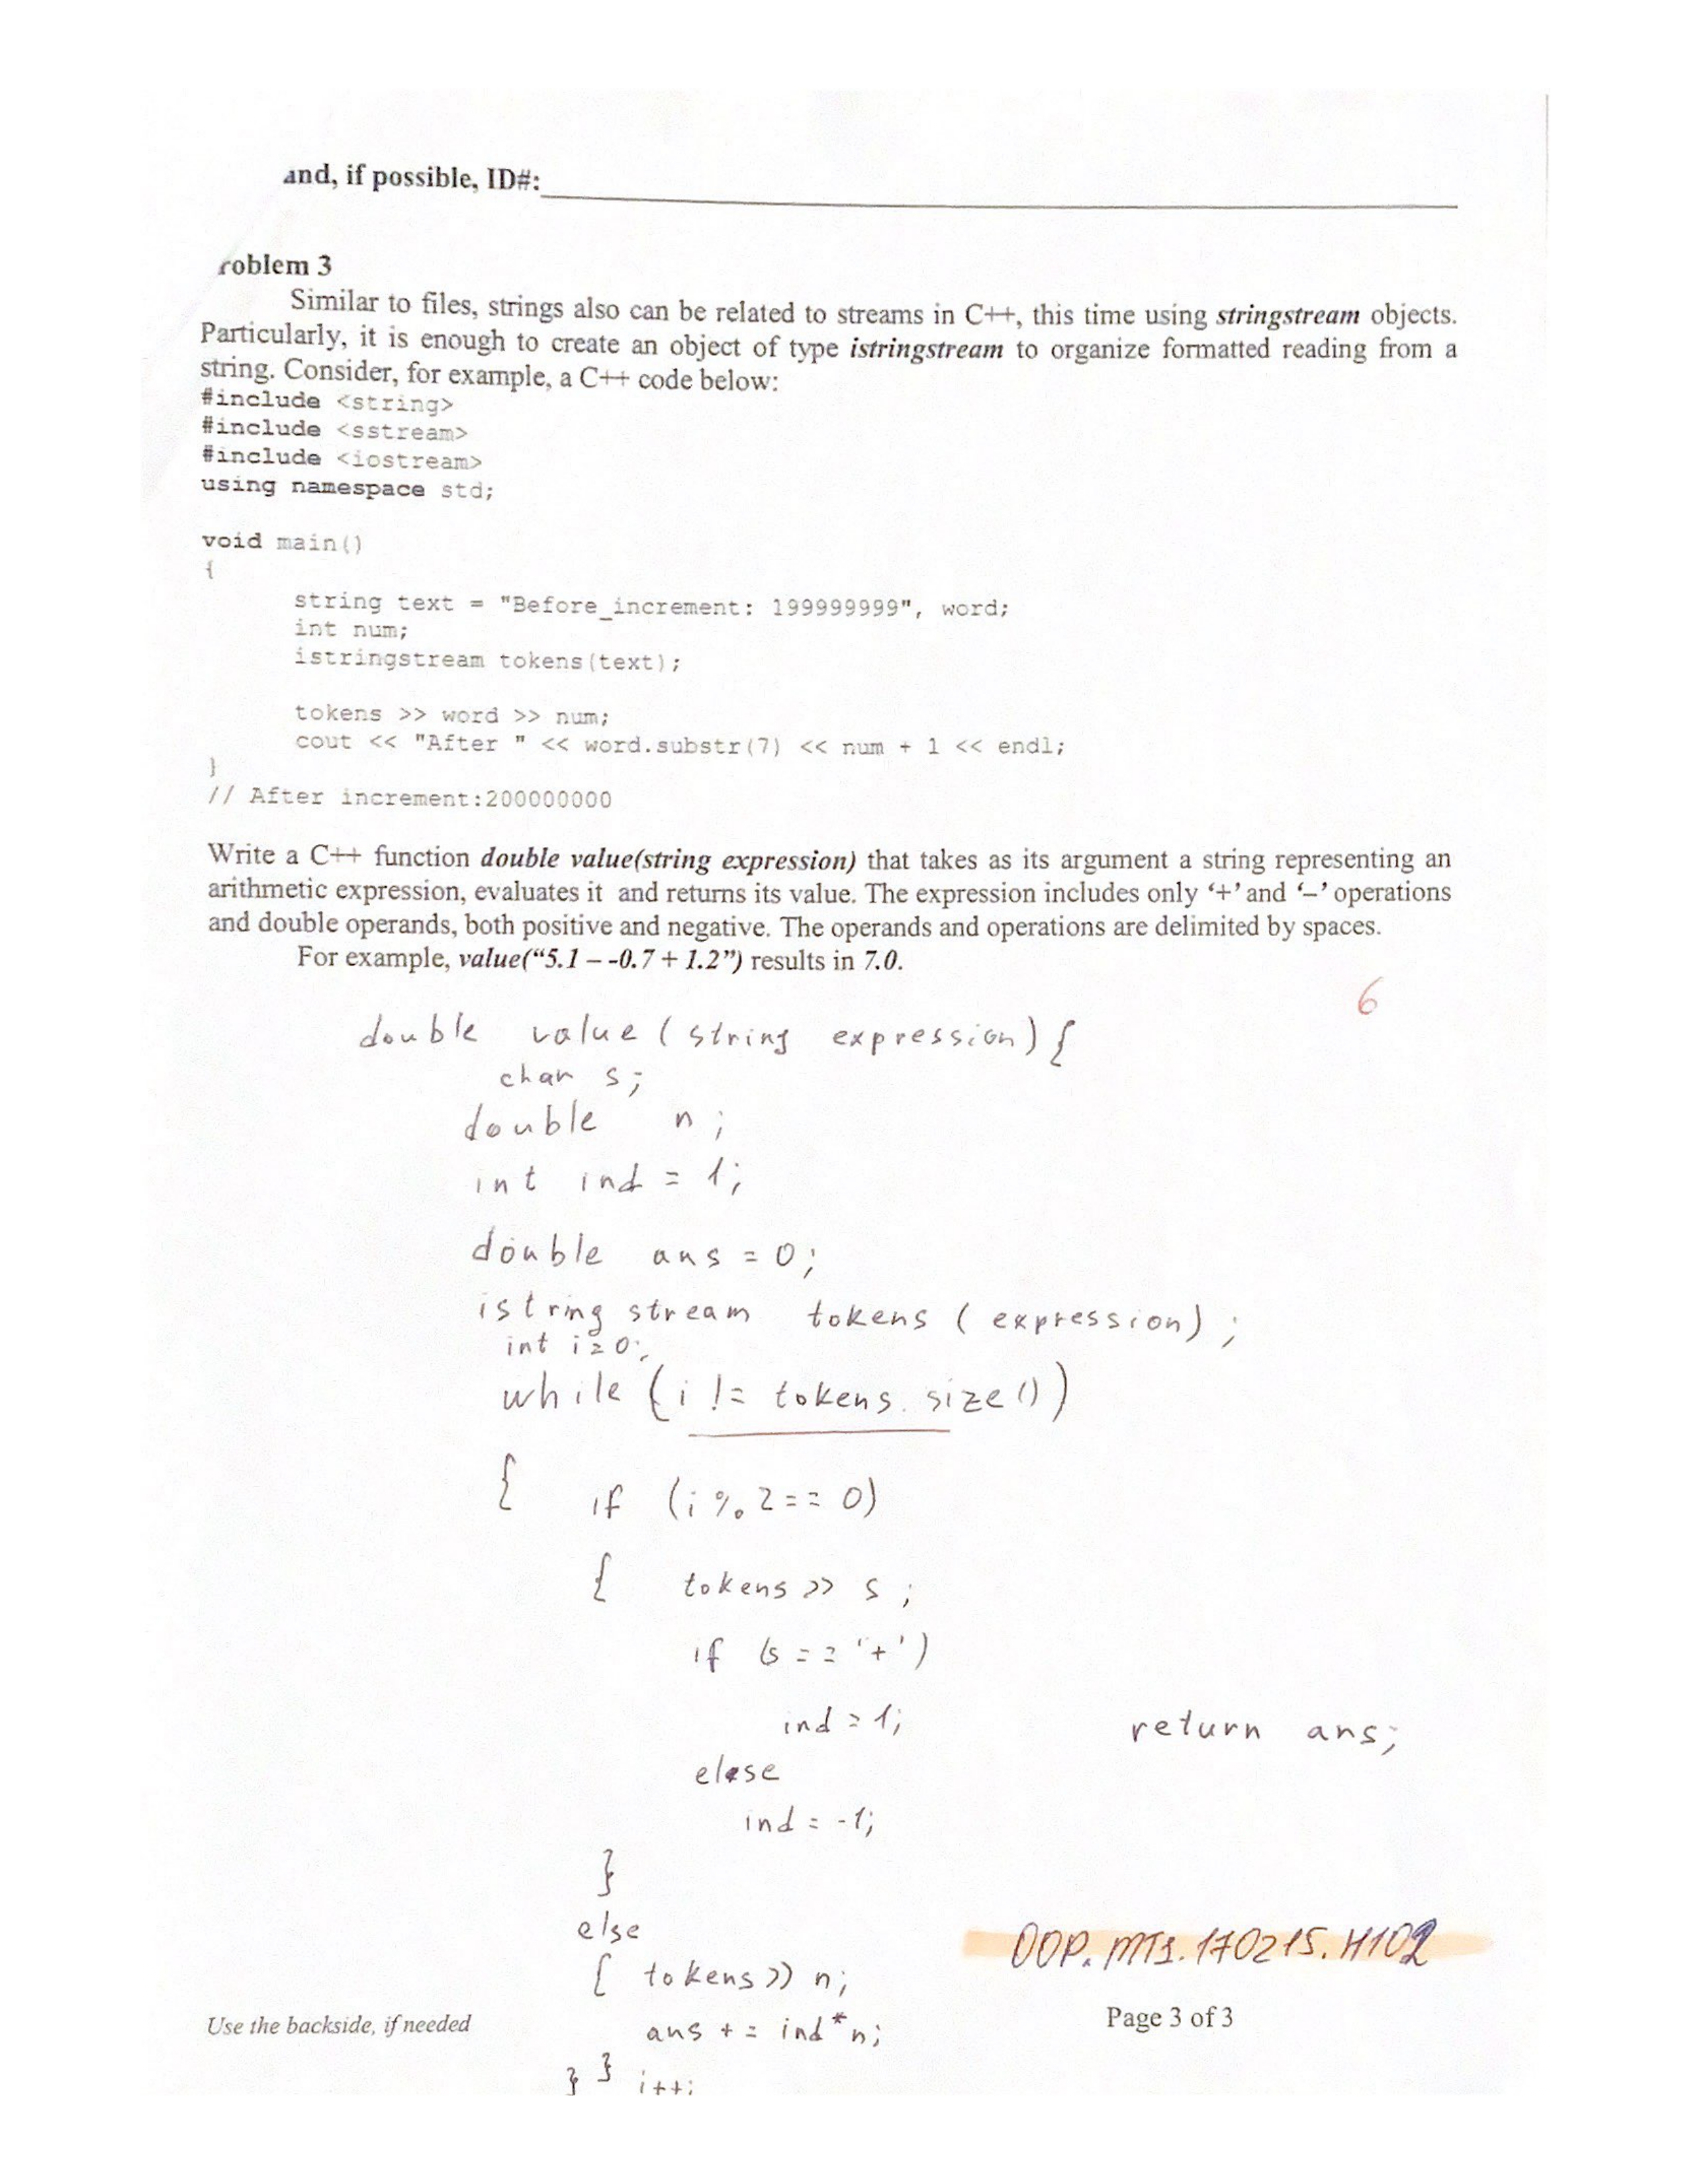 and, if possible, ID#:
roblem 3
Similar to files, strings also can be related to streams in C++, this time using stringstream objects.
Particularly, it is enough to create an object of type istringstream to organize formatted reading from a
string. Consider, for example, a C++ code below:
#include <string>
#include <sstream>
#include <iostream>
using namespace std;
void main()
{
string text = "Before_increment: 199999999", word;
int num;
istringstream tokens(text);
tokens >> word >> num;
cout << "After " << word.substr(7) << num + 1 << endl;
}
// After increment:200000000
Write a C++ function double value(string expression) that takes as its argument a string representing an
arithmetic expression, evaluates it and returns its value. The expression includes only ‘+’ and ‘–’ operations
and double operands, both positive and negative. The operands and operations are delimited by spaces.
For example, value(“5.1 – -0.7 + 1.2”) results in 7.0.
6
double value ( string expression) {
char s;
double n;
int ind = 1;
double ans = 0;
istringstream tokens ( expression) ;
int i=0;
while ( i != tokens.size())
{ if (i % 2 == 0)
{ tokens >> s ;
if (s == '+')
ind = 1;
return ans;
else
ind = -1;
}
else
OOP.MT1.170215.H102
{ tokens >> n;
Use the backside, if needed
Page 3 of 3
ans += ind*n;
} } i++;